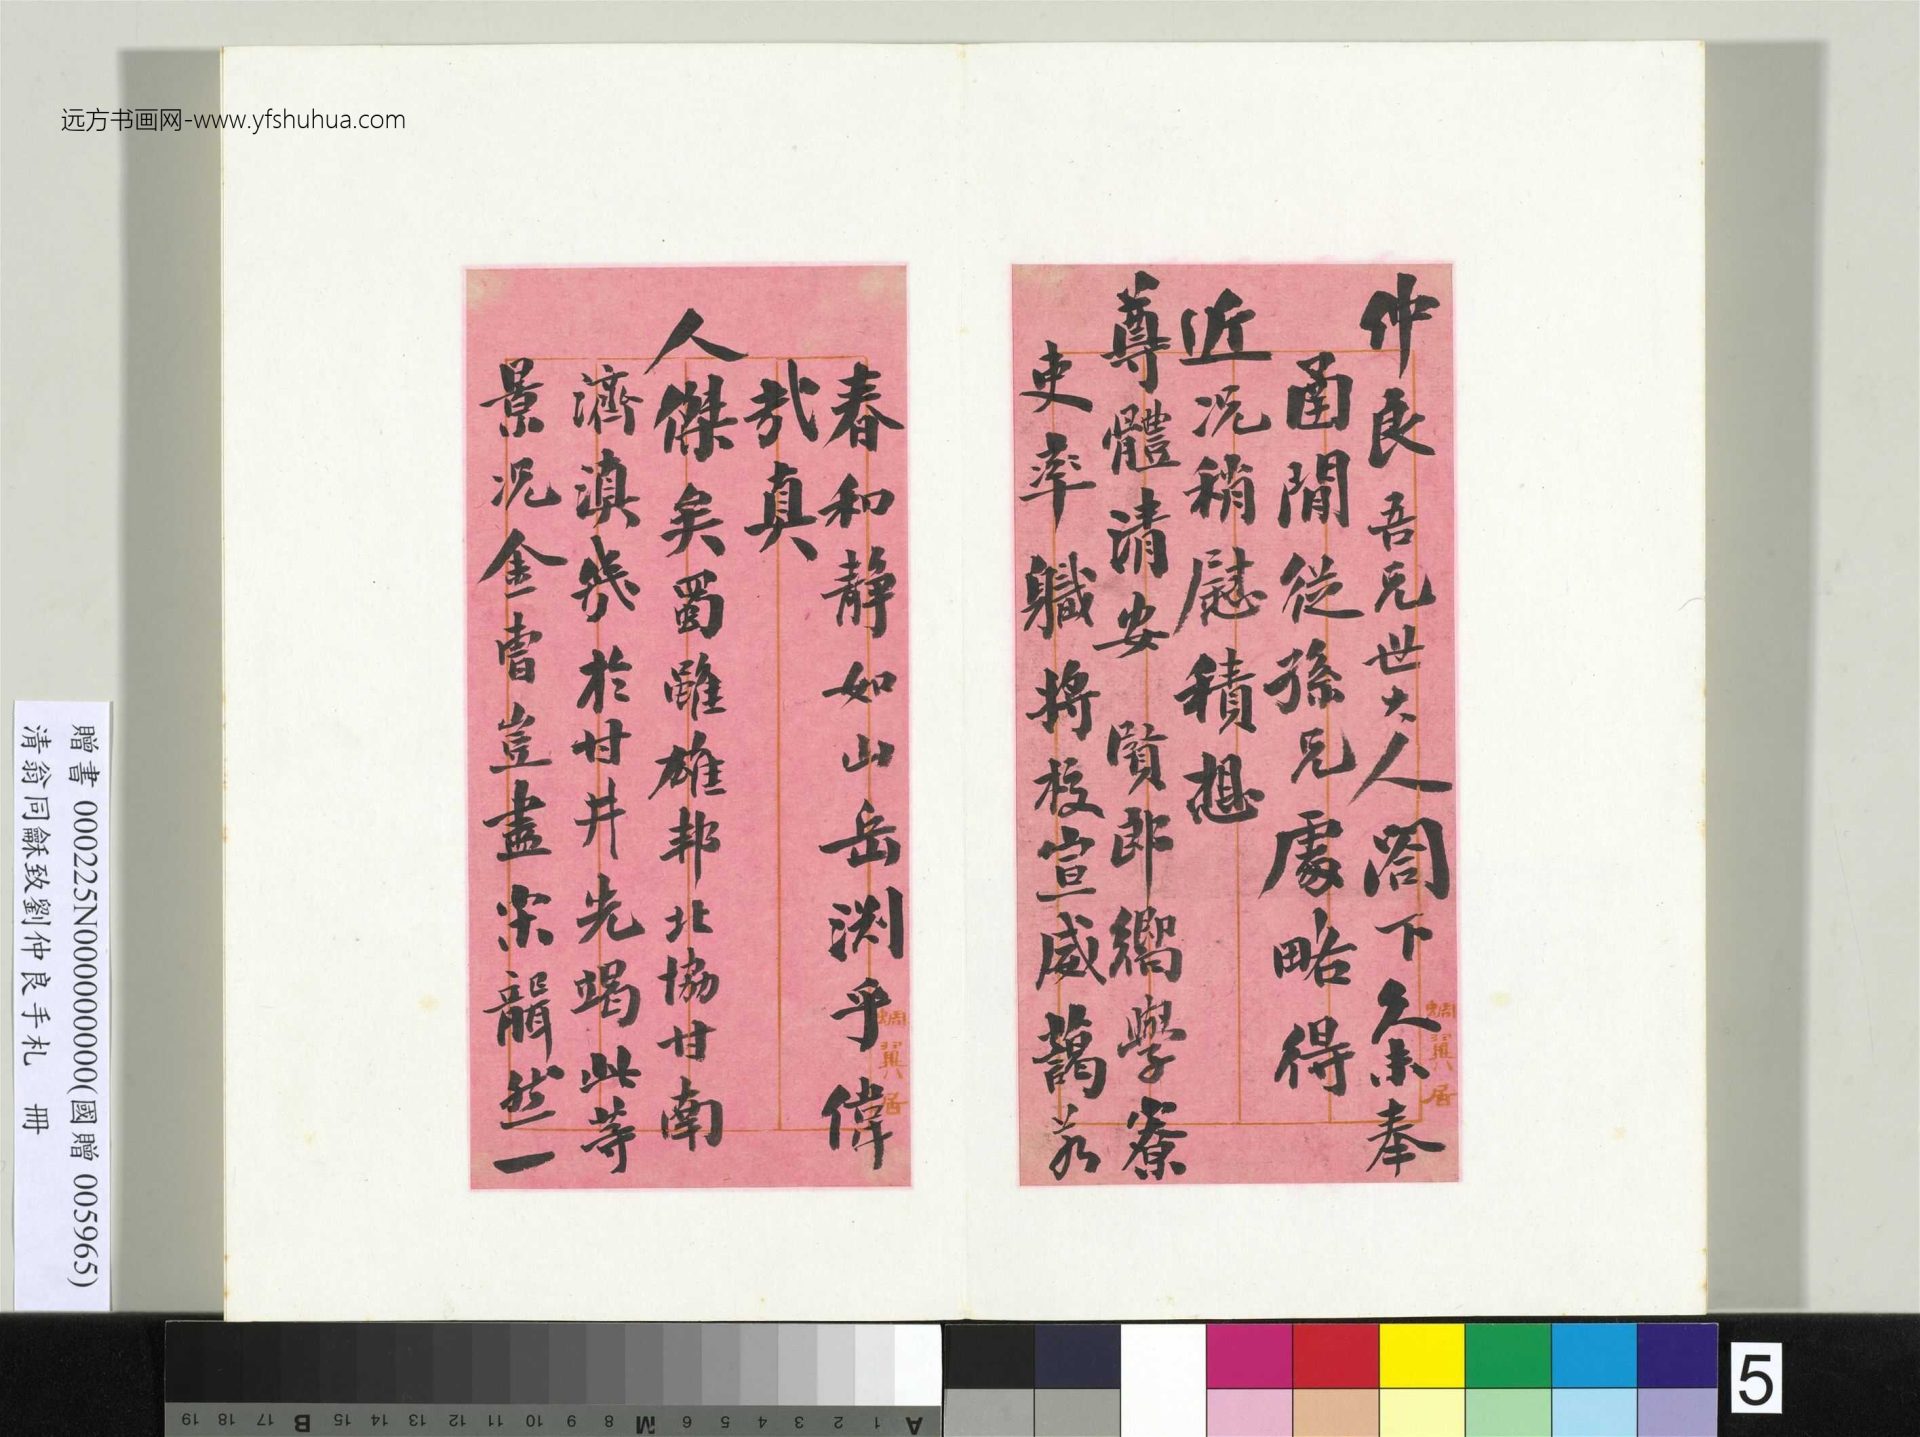 远方书画网-www.yfshuhua.com
仲良吾兄世大人閤下久未奉
函閒從孫兄處略得
近況稍慰積想
尊體清安 賢郎嚮學寮
吏率職將校宣威藹若
蜩翼居
春和靜如山岳渊乎偉
哉真
人傑矣蜀雖雄邦北協甘南
濟滇幾於甘井先竭此等
景況金曹豈盡宋聾然一
蜩翼居
贈書 000225N000000000(國贈 005965)
清翁同龢致劉仲良手札 冊
5
A 1 2 3 4 5 6 M 8 9 10 11 12 13 14 15 B 17 18 19